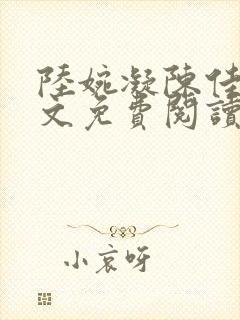 陸婉凝陳佳
文免費閱讀
小哀呀